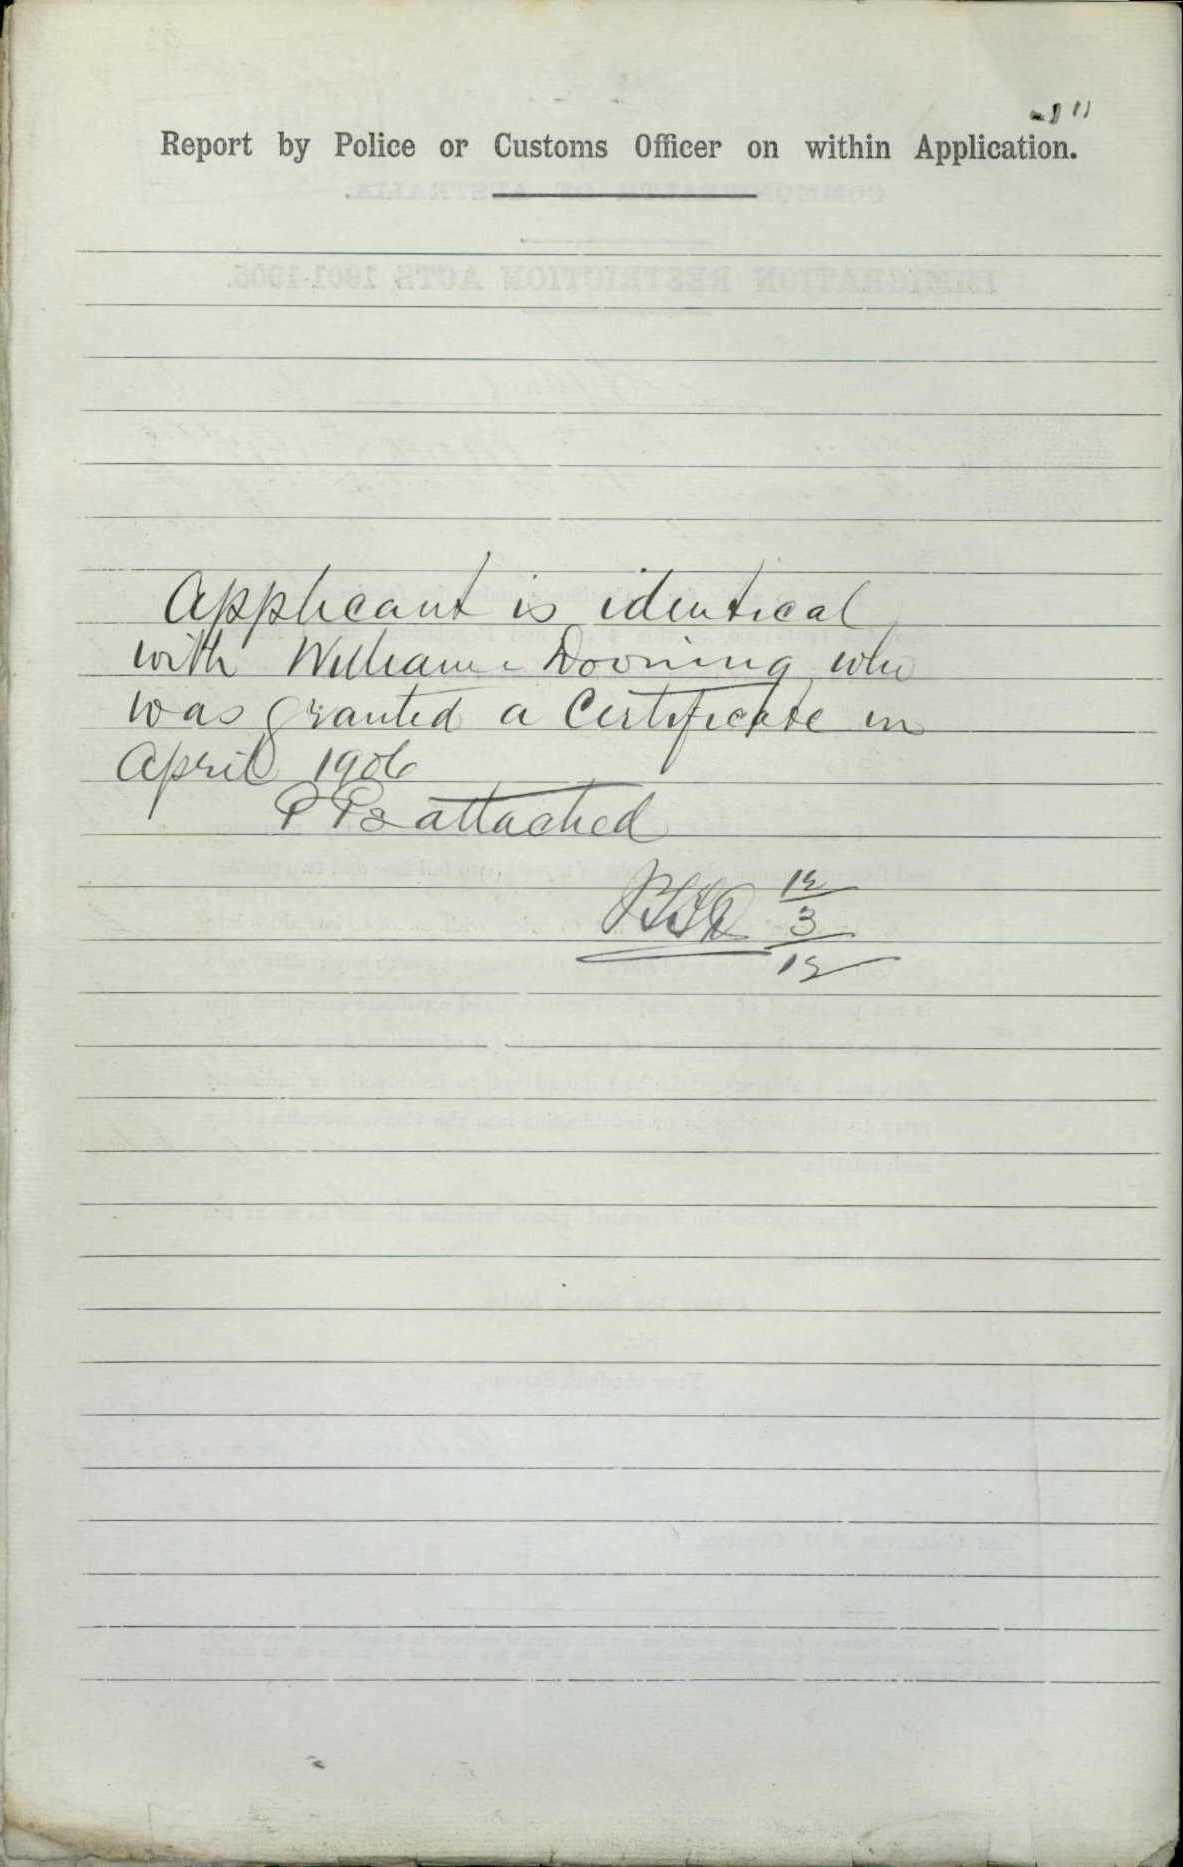 Report by Police or Customs Officer on within Application.
Applicant is identical
with William Dooring who
was granted a Certificate in
April 1906
P Ps attached
12
3
12